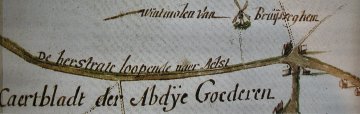 Wintmolen Van Bruijseghem
De herstrate loopende naer Aelst
Caertbladt der Abdÿe Goederen